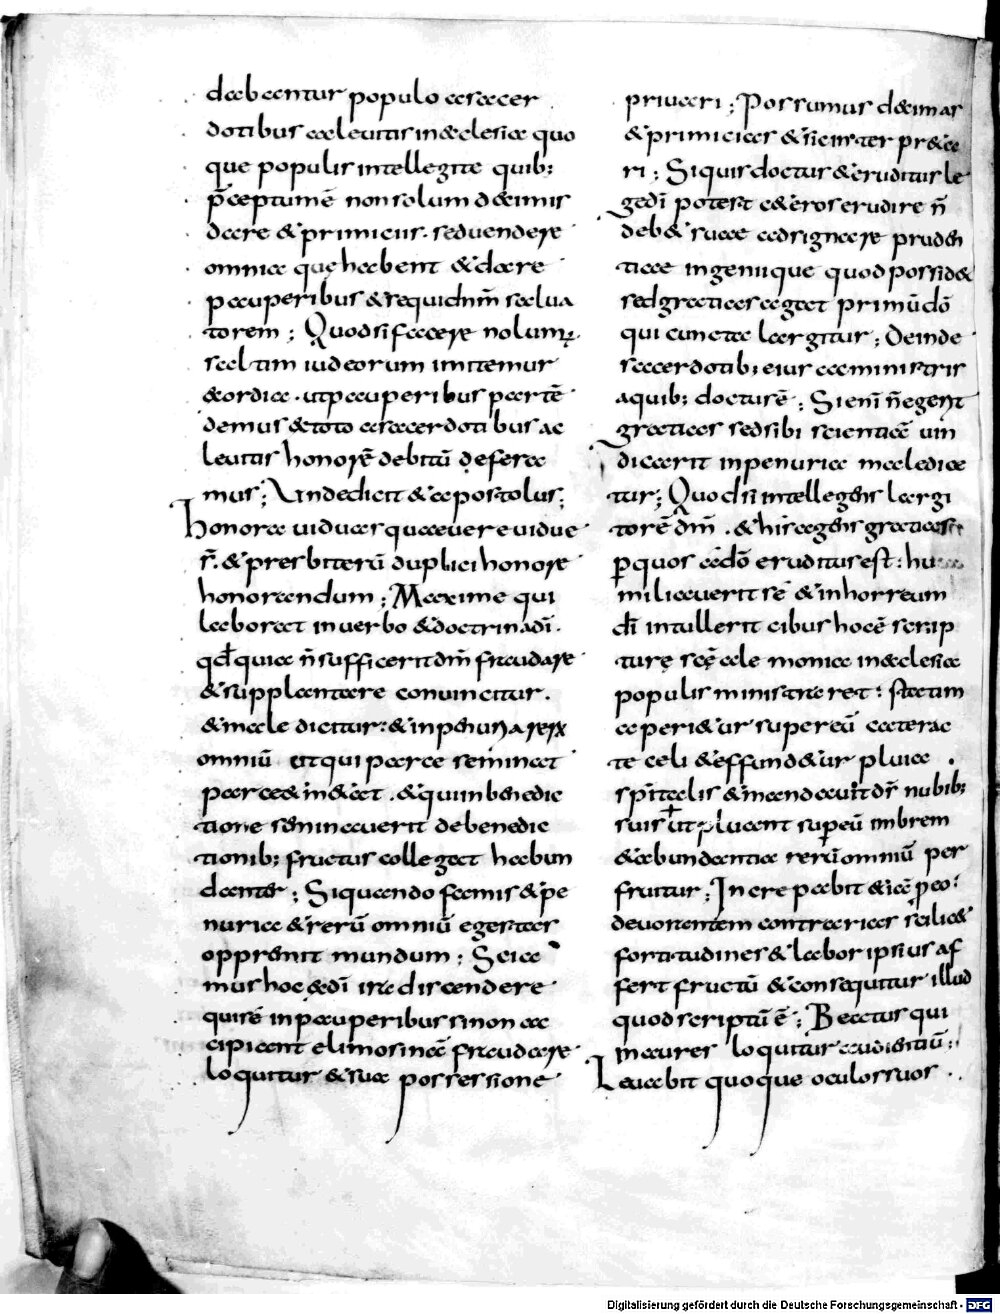 dabantur populo a sacer
dotibus ac leuitis in æclesiæ quo
que populis intellegite quib;
p̄ceptum ē non solum decimis
dare & primicias. sed uendere
omnia quę habent & dare
pauperibus & sequi dn̄m salua
torem; Quod si facere nolumꝰ
saltim iudeorum imitemur
&ordia. ut pauperibus partē
demus & toto a sacerdotibus ac
leuitis honorē debitū defera
mus; Unde dicit & apostolus;
honora uiduas quae uere uidue
s̄. & presbiterū duplici honore
honorandum; Maxime qui
laborat in uerbo & doctrina dī.
qđ quia n̄ sufficerit dn̄m fraudare
& supplantare conuincitur.
& male dicitur: & in penuria rerū
omniū ut qui parce seminat
parce & m&at. & qui in benedic
tione seminauerit de benedic
tionib; fructus collegat habun
danter; Si quando famis & pe
nuria & rerū omniū egestas
opprimit mundum; Scia
mus hoc & dī ira discendere
qui sē in pauperibus si non ac
cipiant elimosinā fraudare
loquitur & sua possessione
priuari; Possumus decimas
& primicias & si[...]iter præ
ri; Si quis doctus & eruditus le
gedī potest & &eros erudire n̄
deb& suæ adsignare pruden
tiae ingeniique quod possid&
sed gratias agat primū dō
qui cuncta largitur; Deinde
sacerdotib; eius ac ministris
a quib; doctus ē; Si enī n̄ egerit
gratias sed sibi scientiā uin
dicarit in penuria maledica
tur; Quod si intellegens largi
torē dm̄. & his agens gratias
p quos ad dō eruditus est: hu
miliauerit sē & in horreum
dī intullerit cibus hoc ē scrip
turę scę cęlemonia in æclesia
populis ministraret: statim
aperi&ur super eū catarac
te celi & effund&ur pluuia.
sp̄italis & mandauit dr̄ nubib;
suis ut pluant sup eū imbrem
& abundantia rerū omniū per
fruitur; Increpabit & iā p eo.
deuorantem contrarias scilic&
fortitudines & labor ipsius af
fert fructū & consequitur illud
quod scriptū ē; Beatus qui
in aures loquitur audientiū;
Leuabit quoque oculos suos.
Digitalisierung gefördert durch die Deutsche Forschungsgemeinschaft - DFG